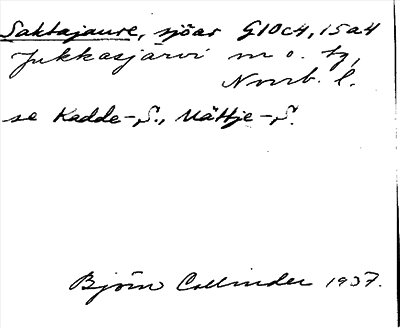 Saktajaure, sjöar G10c4, 15a4
Jukkasjärvi m o. tg,
Norrb. l.
se Kadde-S., Nättje-S.
Björn Collinder 1937.